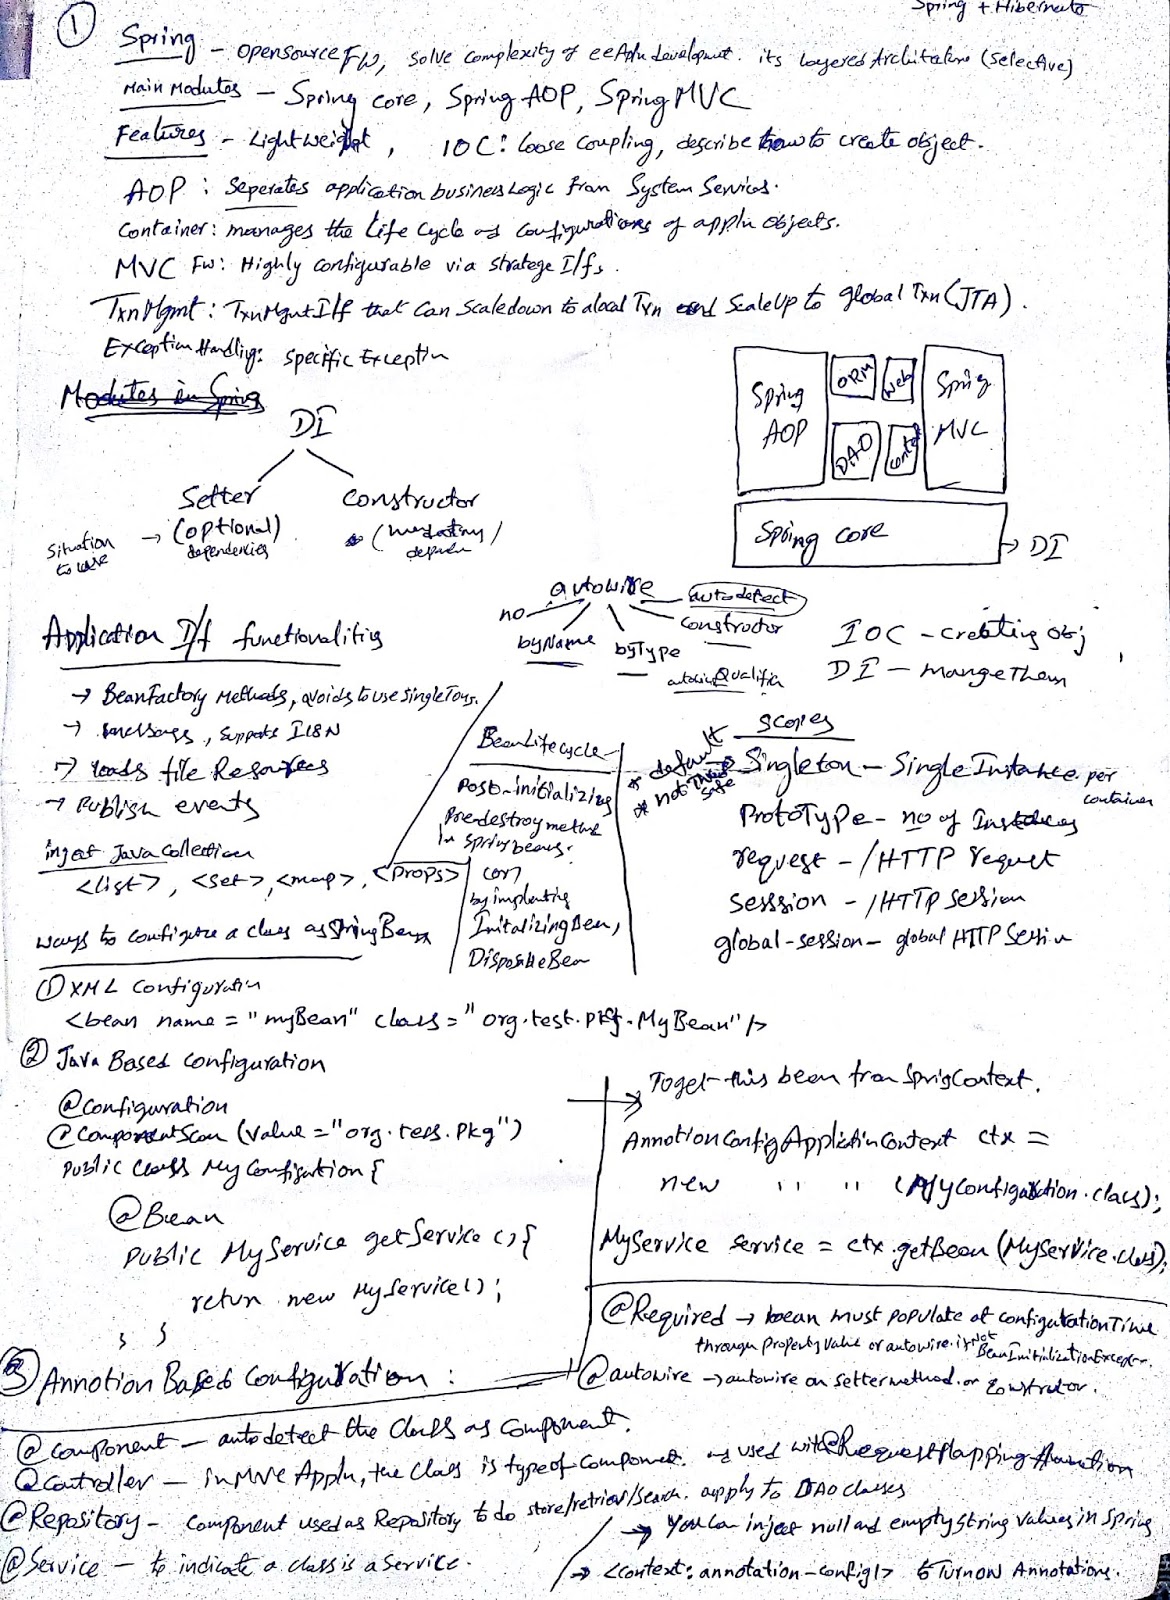 Spring + Hibernate
①
Spring - opensource FW, solve complexity of eeAppln development. its layered Architecture (selective)
Main Modules - Spring core, Spring AOP, Spring MVC
Features - Lightweight, IOC: loose coupling, describe how to create object.
AOP : Seperates application business Logic from System Services.
Container: manages the Life Cycle and configurations of appln objects.
MVC FW: Highly configurable via stratege I/fs.
TxnMgmt: TxnMgmt I/f that can scaledown to a local Txn and scaleup to global Txn (JTA).
Exception Handling: specific Exception
Modules in Spring
DI
Setter
(optional)
dependencies
Situation to use →
constructor
Spring AOP
ORM
Web
DAO
Spring MVC
Spring core
→ DI
autowire
no
byName
byType
constructor
autodetect
Qualifier
IOC - creating obj
DI - mange Them
Application I/f functionalities
→ BeanFactory Methods, avoids to use singletons.
→ , supports I18N
→ loads file Resources
→ Publish events
inject Java collection
<list>, <set>, <map>, <props>
ways to configure a class as Spring Bean
BeanLifecycle
Post-initializing
Pre-destroy method
in spring beans.
(or)
by implenting
InitalizingBean,
DisposibleBean
scopes
* default
* not Thread safe
Singleton - Single Instance per container
ProtoType - no of Instances
request - /HTTP request
sesssion - /HTTP session
global-session - global HTTP Session
① XML Configuration
<bean name = "myBean" class = "org.test.pkg.MyBean"/>
② Java Based configuration
@Configuration
@ComponentScan (value = "org.tess.pkg")
public class MyConfiguration {
@Bean
public MyService getService () {
return new MyService();
} }
→ To get this bean from SprigContext.
AnnotionConfigApplictinContext ctx =
new " " (MyConfiguration.class);
MyService service = ctx.getBean (MyService.class);
@Required → bean must populate at configuration Time
through property value or autowire. if Not BeanInitializationException.
@autowire → autowire on setter method. or constrator.
③ Annotion Based Configuration :
@component - autodetect the class as component.
@controller - in MVC Appln, the class is type of component. and used with @RequestMapping Annotation
@Repository - component used as Repository to do store/retriev/search. apply to DAO classes
@Service - to indicate a class is a service.
→ You can inject null and empty string values in spring
→ <context: annotation-config/> to Turn on Annotations.